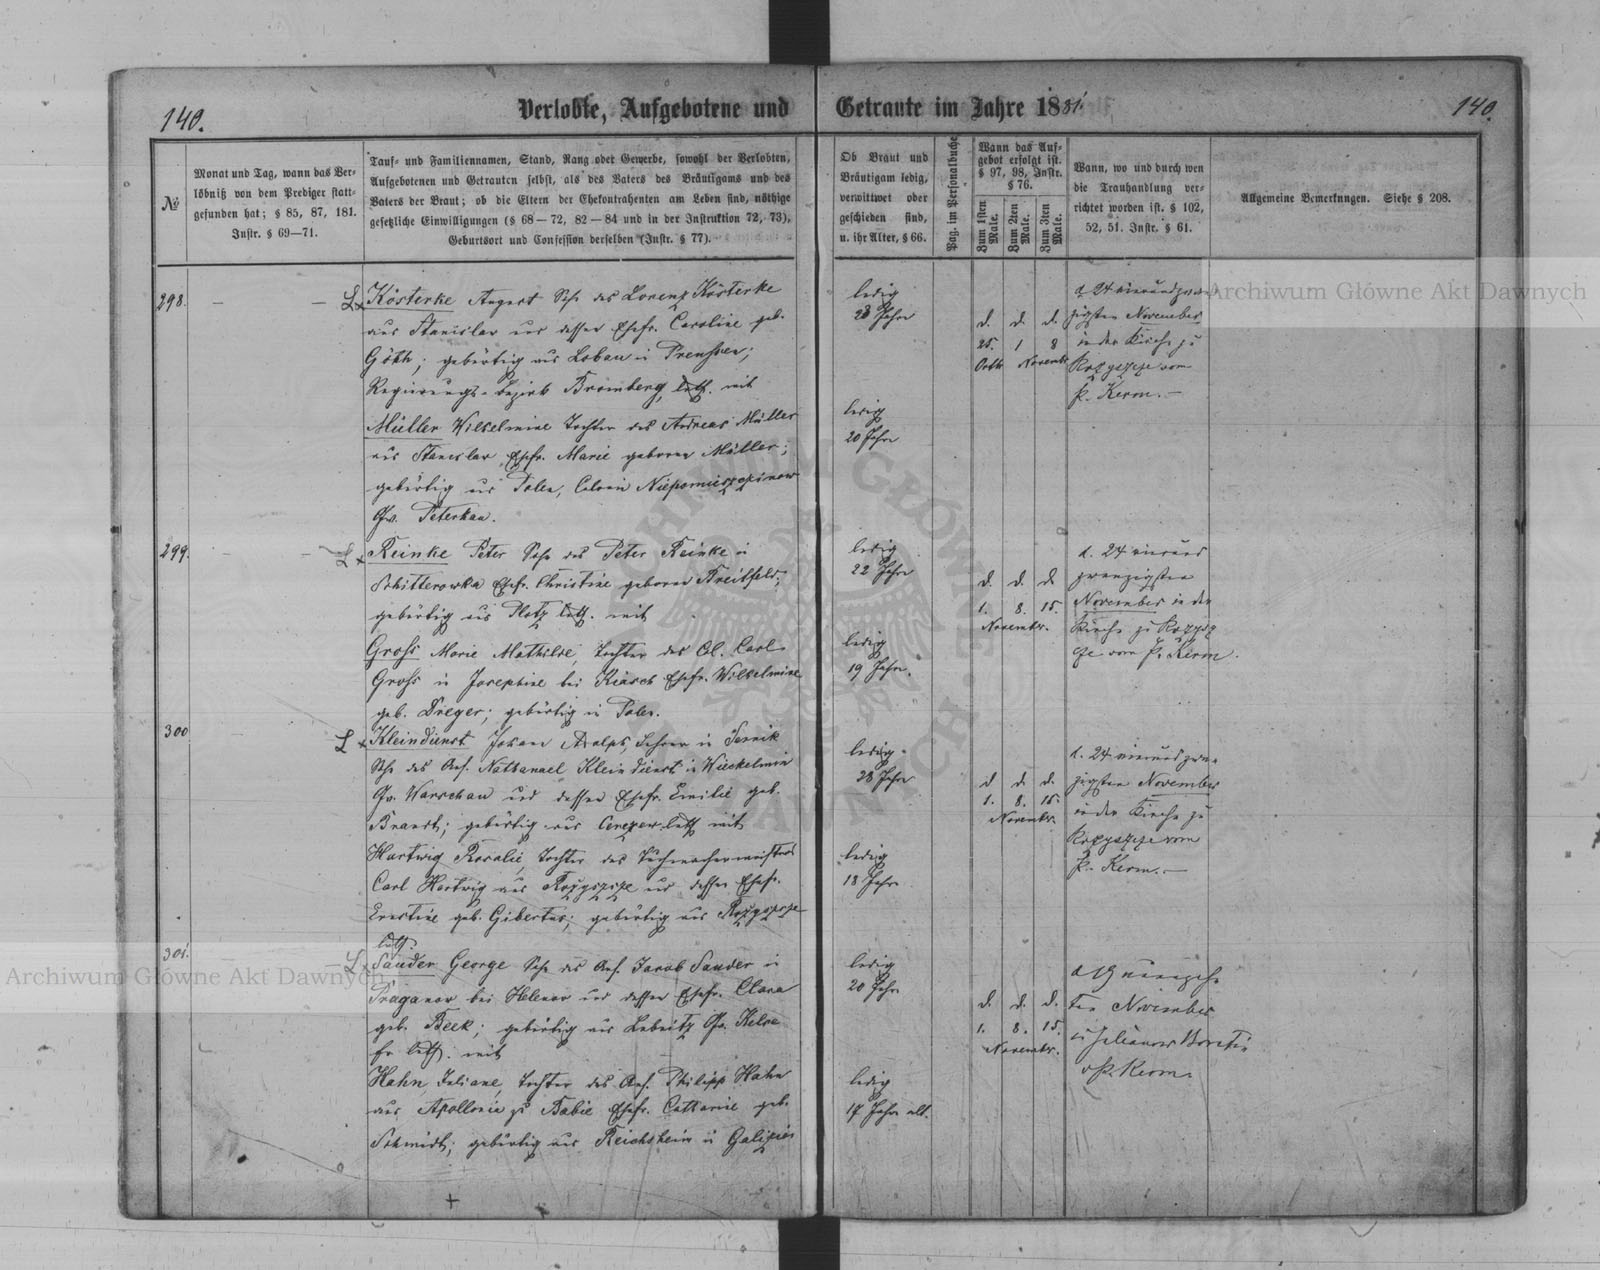 140.
Verlobte, Aufgebotene und Getraute im Jahre 1881.
140.
№
Monat und Tag, wann das Ver-
löbniß von dem Prediger statt-
gefunden hat; § 85, 87, 181.
Instr. § 69—71.
Tauf- und Familiennamen, Stand, Rang oder Gewerbe, sowohl der Verlobten,
Aufgebotenen und Getrauten selbst, als des Vaters des Bräutigams und des
Vaters der Braut; ob die Eltern der Ehekontrahenten am Leben sind, nöthige
gesetzliche Einwilligungen (§ 68—72, 82—84 und in der Instruktion 72, 73),
Geburtsort und Confession derselben (Instr. § 77).
Ob Braut und
Bräutigam ledig,
verwittwet oder
geschieden sind,
u. ihr Alter, § 66.
Pag. im Personalbuche
Wann das Auf-
gebot erfolgt ist.
§ 97, 98, Instr.
§ 76.
Zum 1sten Male.
Zum 2ten Male.
Zum 3ten Male.
Wann, wo und durch wen
die Trauhandlung ver-
richtet worden ist. § 102,
52, 51. Instr. § 61.
Allgemeine Bemerkungen. Siehe § 208.
298.
L Kösterke August Sohn des Lorenz Kösterke
aus Stanislav und dessen Ehefr. Caroline geb.
Göth; gebürtig aus Lobau in Preussen;
Regierungs-Bezirk Bromberg, luth. mit
Müller Wilhelmine Tochter des Andreas Müller
aus Stanislav Ehefr. Marie geboren Müller;
gebürtig aus Polen, Colonie
Gv. Peterkau.
ledig
28 Jahre
ledig
20 Jahre
d. d. d.
25. 1 8
Octb. Novemb.
d. 24 vierundzwan
zigsten November
in der Kirche zu
Rozyszcze vom
P. Kerm.—
299.
L Reinke Peter Sohn des Peter Reinke in
Ehefr. Christine geboren Breitfeld;
gebürtig aus Plotz luth. mit
Gross Marie Mathilde, Tochter des Col. Carl
Gross in Josephine bei Kiasch Ehefr. Wilhelmine
geb. Dreger; gebürtig in Polen.
ledig
22 Jahre
ledig
19 Jahre.
d. d. d
1. 8. 15.
Novembr.
d. 24 vierund
zwanzigsten
November in der
Kirche zu Rozysz
cze vom P. Kerm.
300
L Kleindienst Johann Adolph, Lehrer in
Sohn des Nathanael Kleindienst in
Gv. Warschau und dessen Ehefr. Emilie geb.
Brandt; gebürtig aus luth mit
Hartwig Rosalie, Tochter des Tuchmachermeisters
Carl Hartwig aus Rozyszcze und dessen Ehefr.
Ernstine geb. Gibertus; gebürtig aus Rozyszcze
luth.
ledig
28 Jahre
ledig
18 Jahre
d d. d.
1. 8. 15.
Novembr.
d. 24 vierundzwan
zigsten November
in der Kirche zu
Rozyszcze vom
P. Kerm.—
301.
L Sauder George Sohn des Jacob Sauder in
bei Helenow und dessen Ehefr. Clara
geb. Beck; gebürtig aus
luth. mit
Hahn Juliane, Tochter des Philipp Hahn
aus Apollonie zu Babie Ehefr. Catharine geb.
Schmidt; gebürtig aus Reichsheim in Galizien
ledig
20 Jahre
ledig
17 Jahre alt.
d. d. d.
1. 8. 15.
Novembr.
ten November
P. Kerm.
Archiwum Główne Akt Dawnych
Archiwum Główne Akt Dawnych
ARCHIWUM GŁÓWNE AKT DAWNYCH